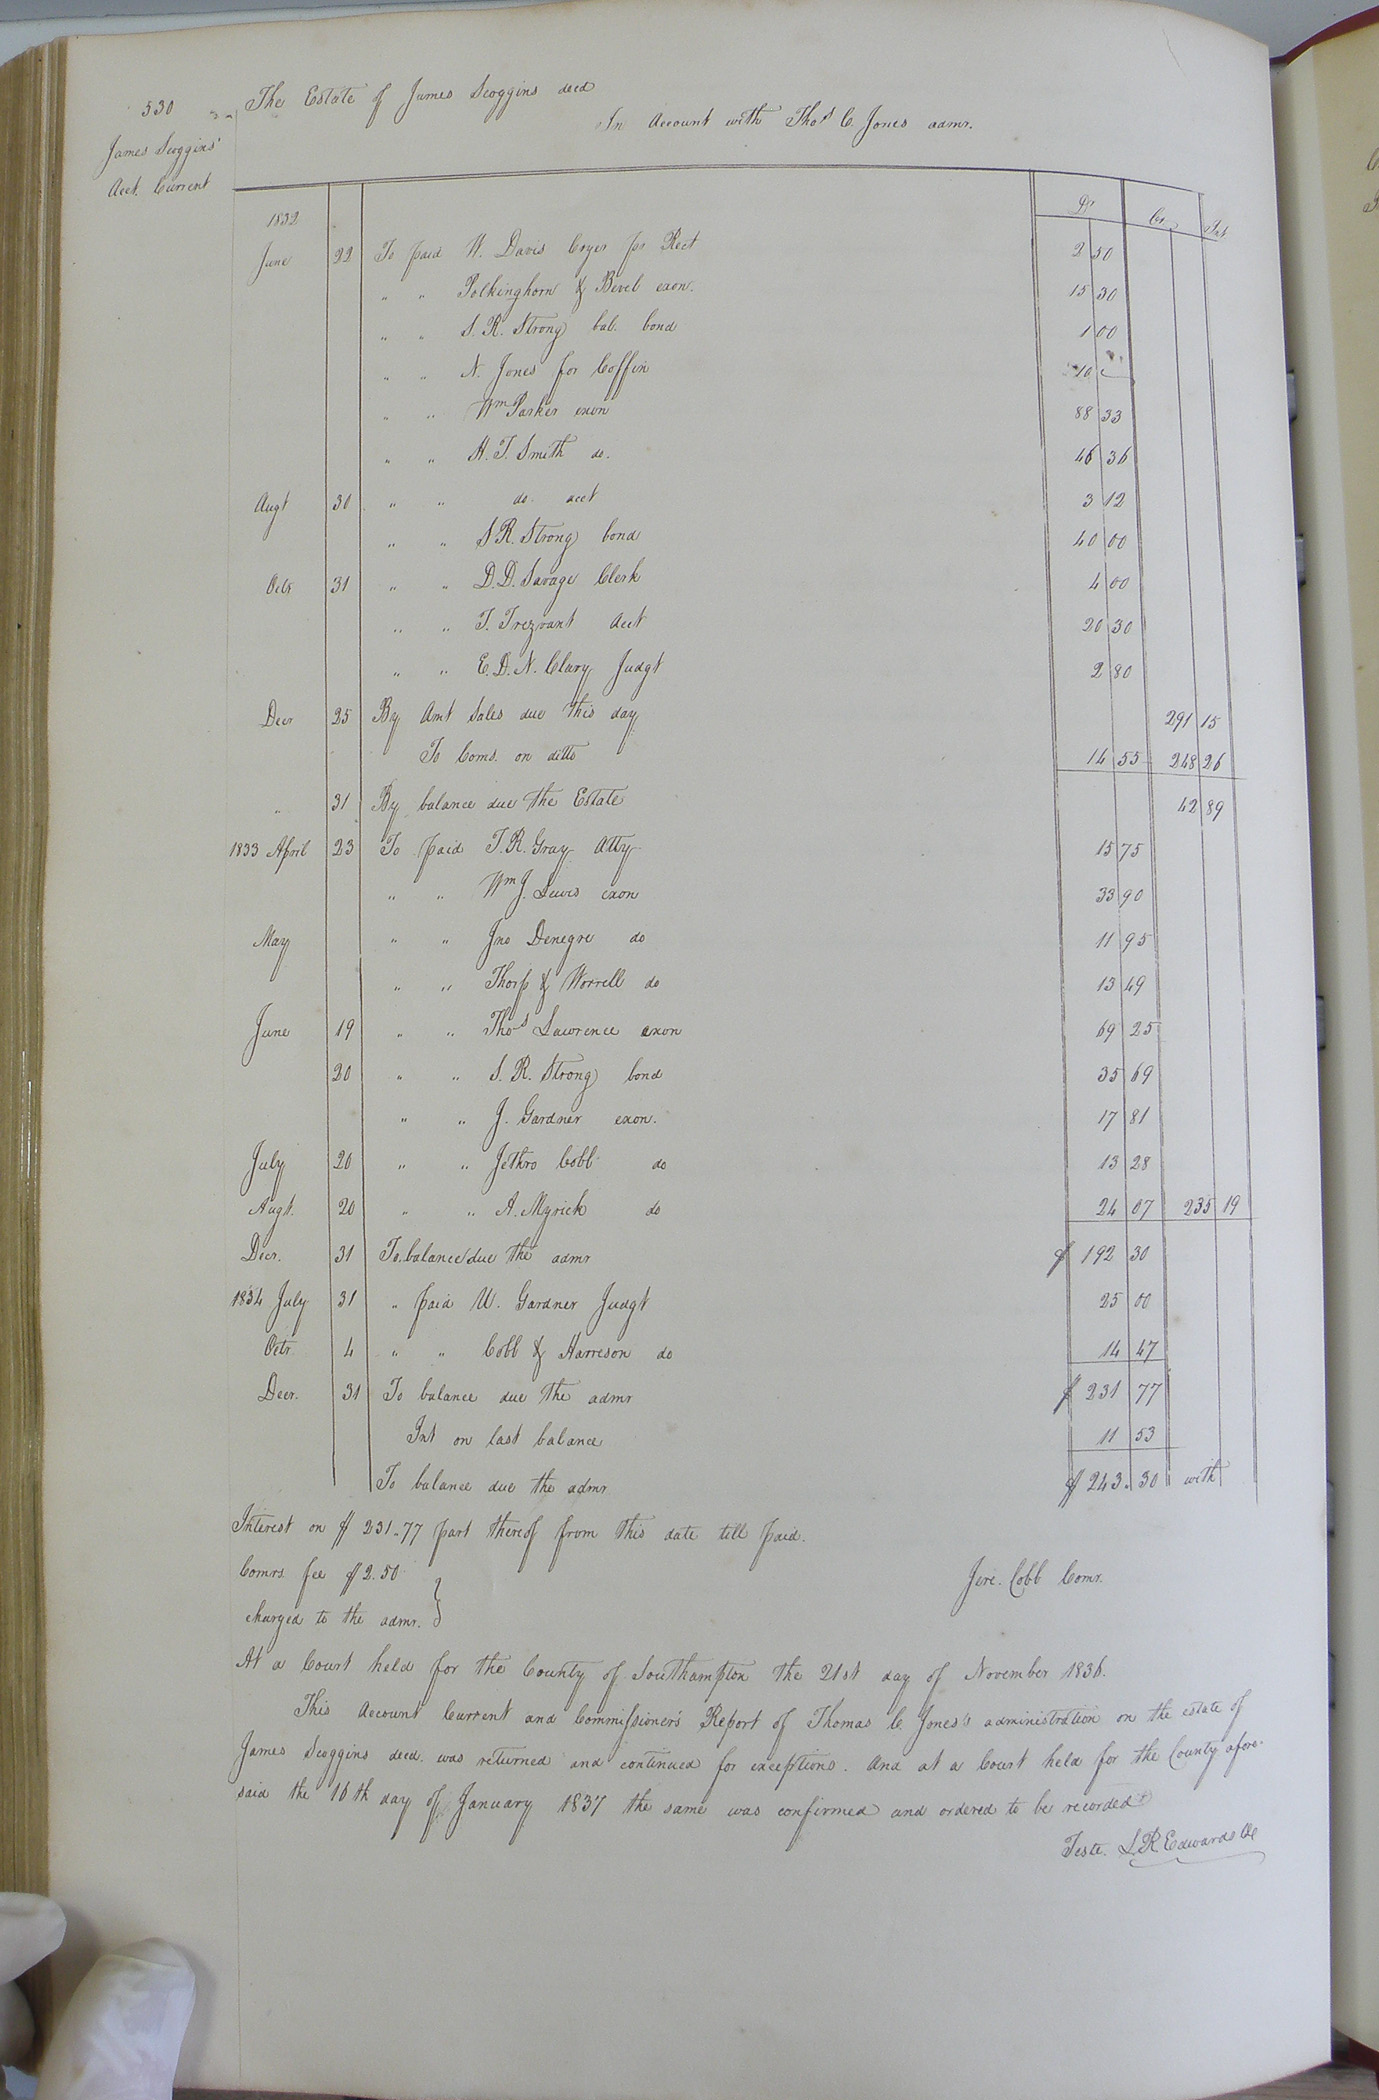 530
The Estate of James Scoggins decd
In Account with Thos C. Jones admr.
James Scoggins'
Acct. Current
Dr Cr Int
1832
June 22 To paid W. Davis Cryer pr Rect 2 50
" " Polkinghorn & Bevel exon. 15 30
" " S. R. Strong bal. bond 1 00
" " N. Jones for Coffin 10
" " Wm Parker exon 88 33
" " H. T. Smith do. 46 36
Augt 30 " " do. acct 3 12
" " S R. Strong bond 40 00
Octr 31 " " D. D. Savage Clerk 4 00
" " T. Trezvant Acct 20 30
" " E. D. N. Clary Judgt 2 80
Decr 25 By Amt Sales due this day 291 15
To Coms. on ditto 14 55 248 26
" 31 By balance due the Estate 42 89
1833 April 23 To paid T. R. Gray Atty 15 75
" " Wm J. Lewis exon 33 90
May " " Jno Denegre do 11 95
" " Thorp & Worrell do 13 49
June 19 " " Thos Lawrence exon 69 25
20 " " S. R. Strong bond 35 69
" " J. Gardner exon. 17 81
July 20 " " Jethro Cobb do 13 28
Augt. 20 " " A. Myrick do 24 07 235 19
Decr. 31 To balance due the admr $ 192 30
1834 July 31 " paid W. Gardner Judgt 25 00
Octr 4 " " Cobb & Harreson do 14 47
Decr. 31 To balance due the admr $ 231 77
Int on last balance 11 53
To balance due the admr $ 243. 30 with
Interest on $ 231.77 part thereof from this date till paid.
Comrs. fee $2.50
Jere. Cobb Comr.
charged to the admr. }
At a Court held for the County of Southampton the 21st day of November 1836.
This Account Current and Commissioner's Report of Thomas C. Jones's administration on the estate of
James Scoggins decd. was returned and continued for exceptions. And at a Court held for the County afore-
said the 16th day of January 1837 the same was confirmed and ordered to be recorded
Teste. L. R. Edwards Clk